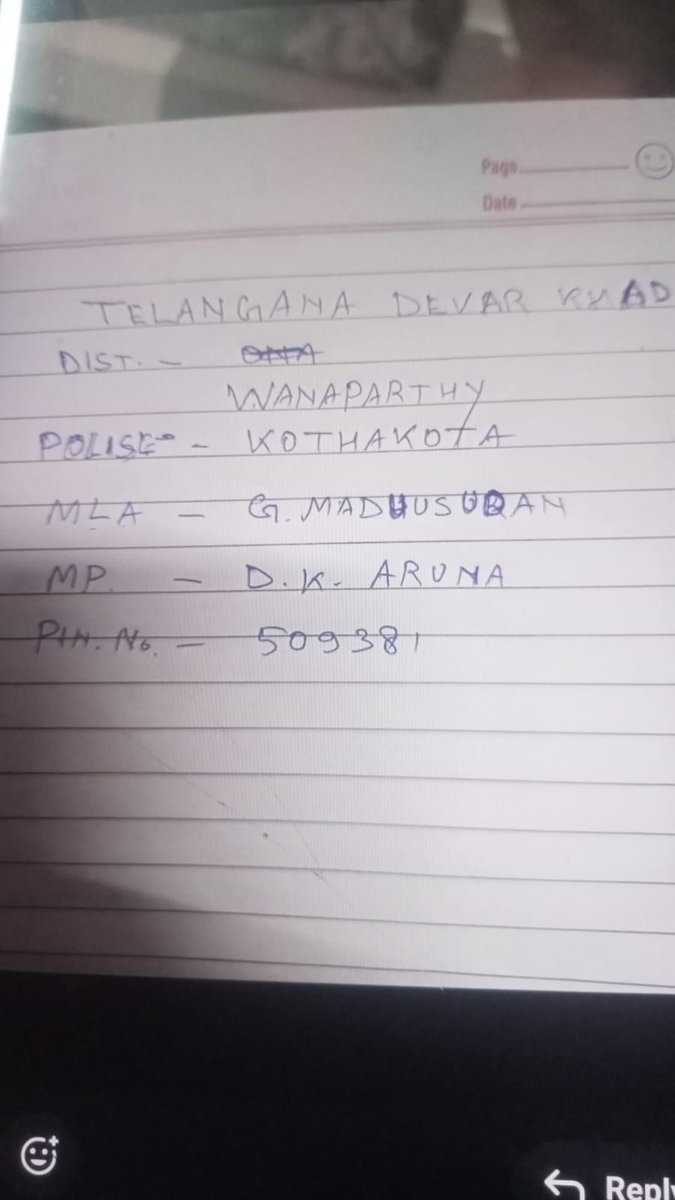 Page
Date
TELANGANA DEVAR KHAD
DIST. -
WANAPARTHY
POLISE - KOTHAKOTA
MLA - G. MADHUSUDAN
MP. - D.K. ARUNA
PIN. No. - 509381
Reply